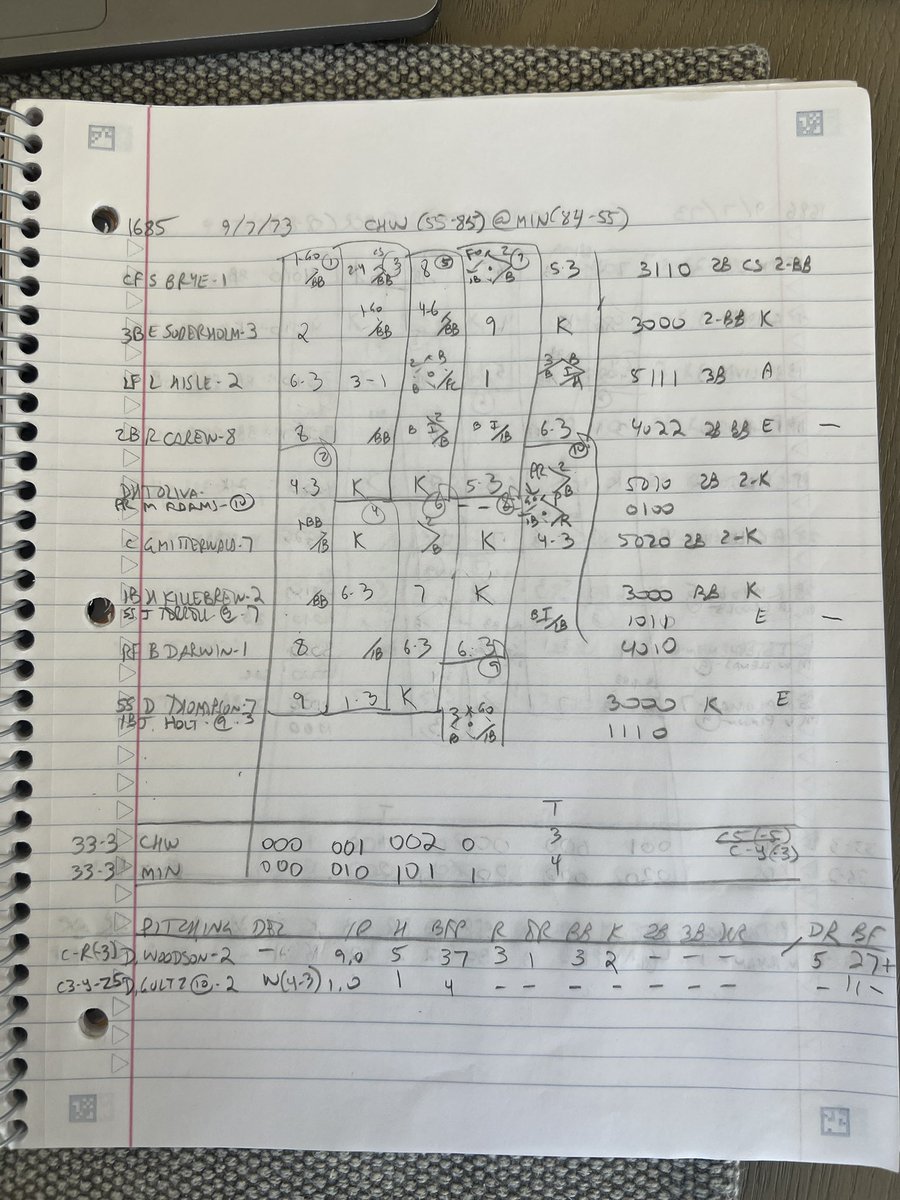 1685 9/7/73 CHW (55-85) @ MIN (84-55)
1-GO ① CS 3 ⑤ FOX 2 ⑦
CF S BRYE-1 /BB 2-4 /BB 8 1B /B 5-3 3110 2B CS 2-BB
1-GO 4-6
3B E SODERHOLM-3 2 /BB /BB 9 K 3000 2-BB K
LF L HISLE-2 6-3 3-1 /FC 1 5111 3B A
2B R CAREW-8 8 /BB B I/B B I/1B 6-3 4022 2B BB E —
② ⑩
DH T OLIVA- 4-3 K K 5-3 PR 2 5020 2B 2-K
PR M ADAMS-⑩ ④ ⑥ -- ⑧ 0100
1-BB
C G MITTERWALD-7 /B K /B K 4-3 5020 2B 2-K
1B H KILLEBREW-2 /BB 6-3 7 K 3000 BB K
SS J TERRELL ⑨-7 BI/1B 1010 E —
RF B DARWIN-1 8 /1B 6-3 6-3 4010
⑨
SS D THOMPSON-7 9 1-3 K 3000 K E
1B J. HOLT-⑨-3 /1B 1110
T
33-3 CHW 000 001 002 0 3 C5(-5)
33-3 MIN 000 010 101 1 4 C-4(-3)
PITCHING DEC IP H BFP R ER BB K 2B 3B HR / DR BF
C-R(-3) D, WOODSON-2 — 9,0 5 37 3 1 3 2 - - - 5 27+
C3-4-Z5 D, GOLTZ ⑩-2 W(4-3) 1,0 1 4 - - - - - - - - 11-